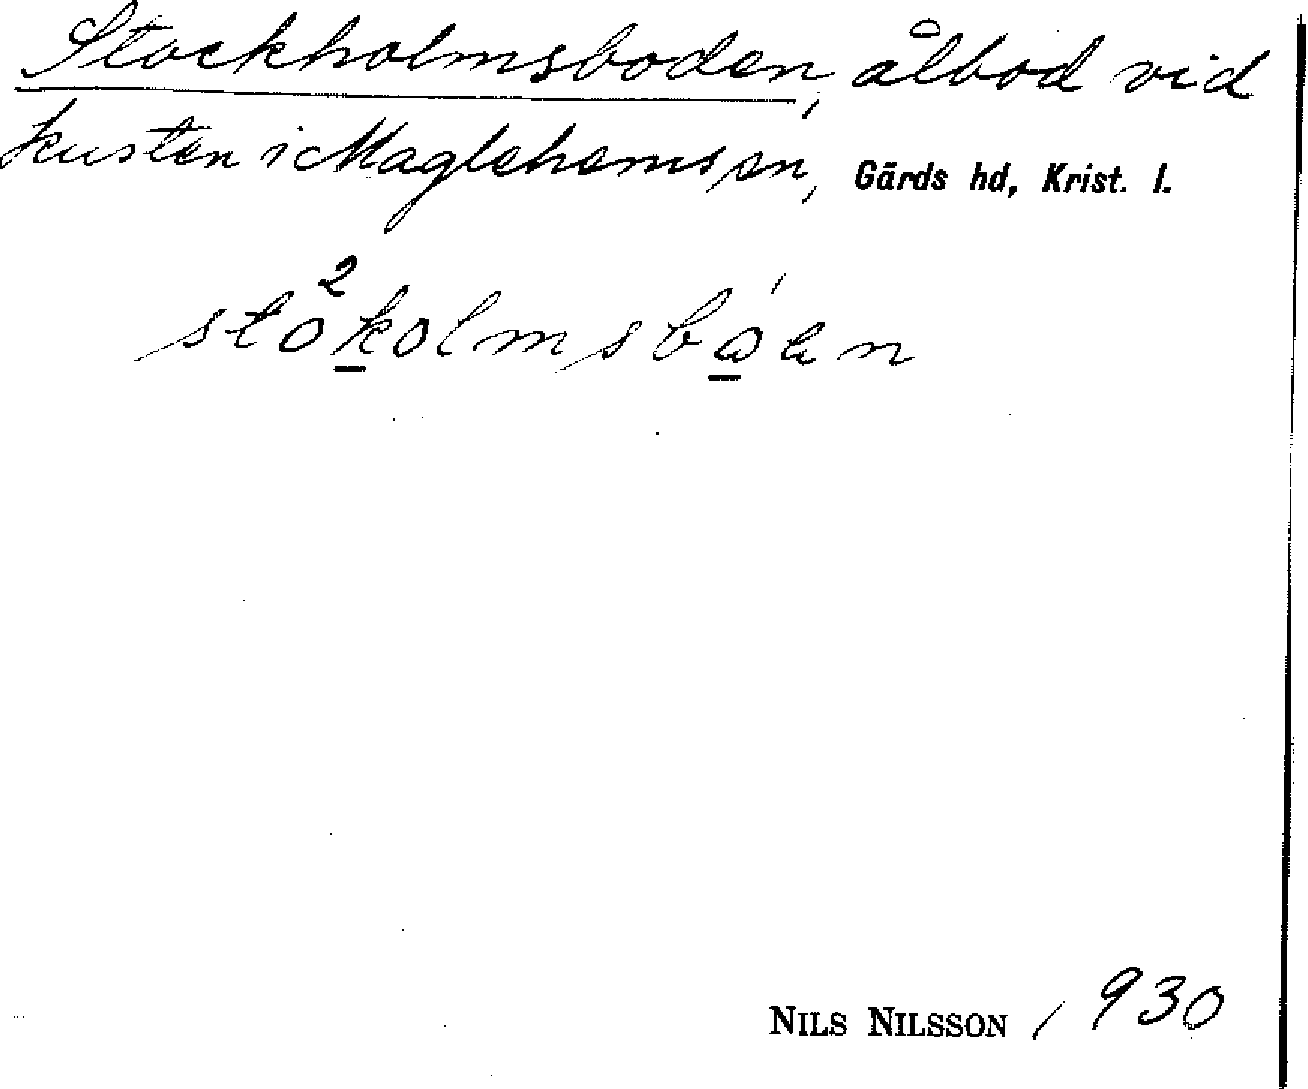 Stockholmsboden, ålbod vid
kusten i Maglehems sn, Gärds hd, Krist. l.
NILS NILSSON 1930